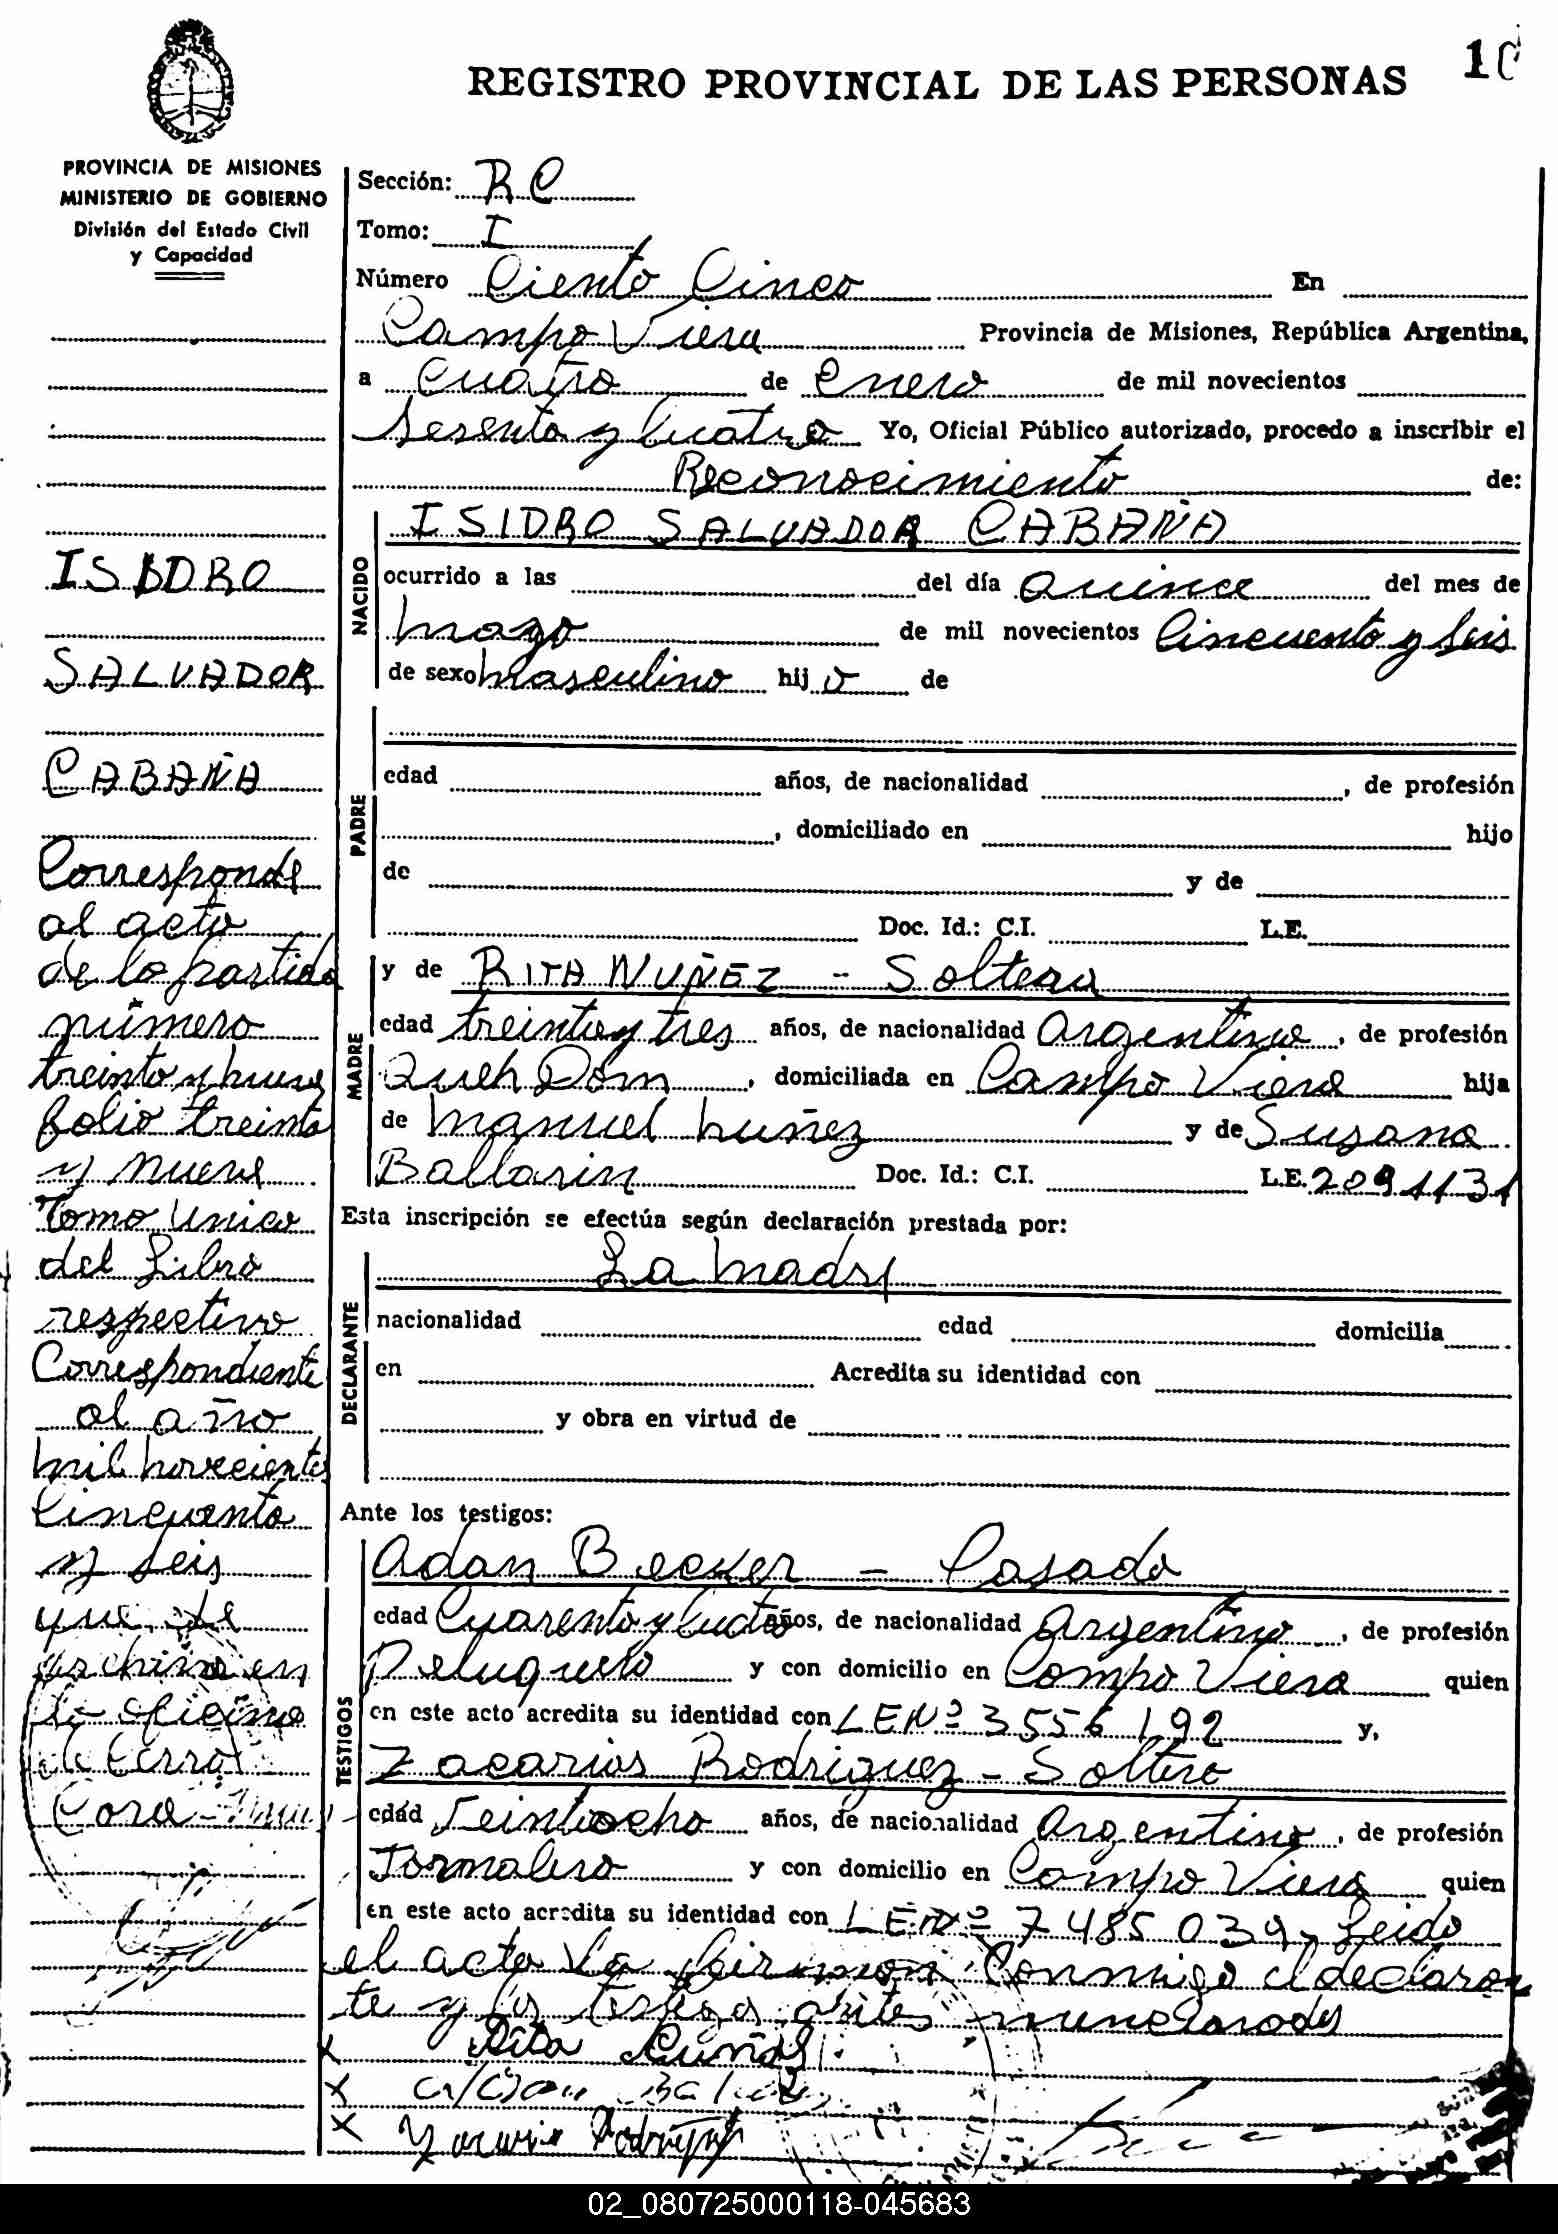 REGISTRO PROVINCIAL DE LAS PERSONAS
10
PROVINCIA DE MISIONES
MINISTERIO DE GOBIERNO
División del Estado Civil
y Capacidad
Sección: RC
Tomo: I
Número Ciento Cinco En
Campo Viera Provincia de Misiones, República Argentina,
a Cuatro de Enero de mil novecientos
Sesenta y Cuatro Yo, Oficial Público autorizado, procedo a inscribir el
Reconocimiento de:
NACIDO
ISIDRO SALVADOR CABAÑA
ocurrido a las del día Quince del mes de
Mayo de mil novecientos Cincuenta y Seis
de sexo Masculino hijo de
PADRE
edad años, de nacionalidad , de profesión
, domiciliado en hijo
de y de
Doc. Id.: C.I. L.E.
MADRE
y de RITA NUÑEZ - Soltera
edad treinta y tres años, de nacionalidad Argentina, de profesión
Queh Dom, domiciliada en Campo Viera hija
de Manuel Nuñez y de Susana
Ballarin Doc. Id.: C.I. L.E. 2091131
Esta inscripción se efectúa según declaración prestada por:
DECLARANTE
La Madre
nacionalidad edad domicilia
en Acredita su identidad con
y obra en virtud de
Ante los testigos:
TESTIGOS
Adan Becker - Casado
edad Cuarenta y Cuatro años, de nacionalidad Argentino, de profesión
Peluquero y con domicilio en Campo Viera quien
en este acto acredita su identidad con LE Nº 3556192 y,
Zacarias Rodriguez - Soltero
edad Veintiocho años, de nacionalidad Argentino, de profesión
Jornalero y con domicilio en Campo Viera quien
en este acto acredita su identidad con LE Nº 7485039, Leido
el acta la firman Conmigo el declaran
te y los testigos antes mencionados
Rita Nuñez
ISIDRO
SALVADOR
CABAÑA
Corresponde
al acta
de la partida
número
treinta y nueve
folio treinta
y nueve
Tomo Unico
del Libro
respectivo
Correspondiente
al año
mil novecientos
Cincuenta
y Seis
que se
archiva en
la oficina
de Cerro
Cora
02_080725000118-045683